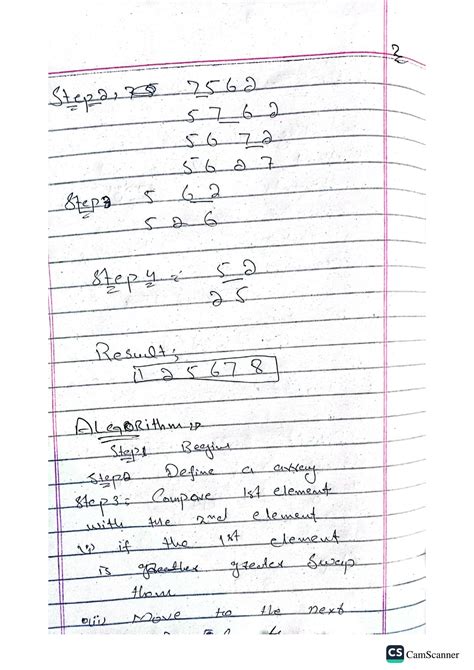 2
Step2, 75 7562
5762
5672
5627
Step3 5 62
5 2 6
Step 4 = 52
25
Result;
1 2 5 6 7 8
ALegoRithm:-
Step1 Beegins
Step2 Define a array
Step3:- Compare 1st element
with the 2nd element
if the 1st element
is greater Swap
them
(iii) Move to the next
CS CamScanner